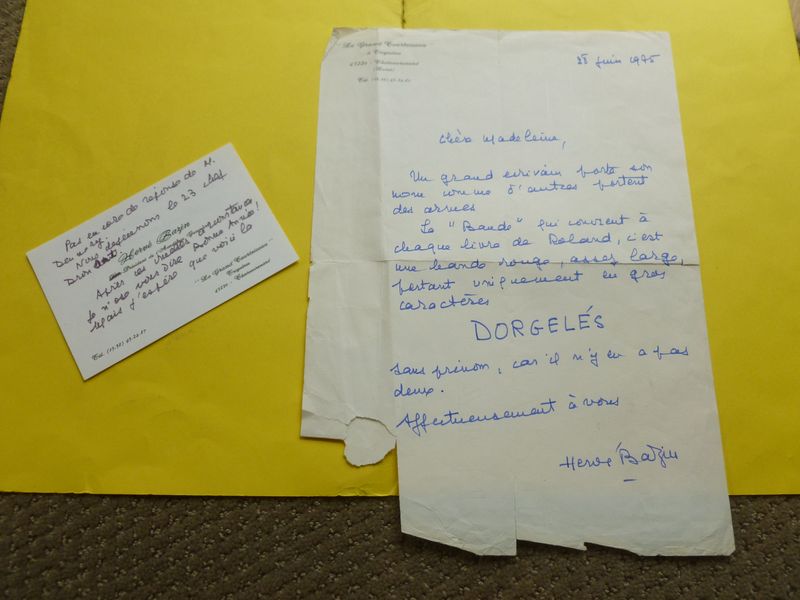 Pas encore de réponse de M.
Nous déjeunons le 23 chez
Druon
Hervé Bazin
Après les
je n'ose vous dire Bonne Année!
Mais j'espère que voici la
"Le Grand Courtoiseau"
Triguères
45220 - Châteaurenard
Tél.
"Le Grand Courtoiseau"
à Triguères
45220 - Châteaurenard
(Loiret)
Tél.
28 juin 1975
Chère Madeleine,
Un grand écrivain porte son
nom comme d'autres portent
des armes
La "Bande" qui convient à
chaque livre de Roland, c'est
une bande rouge, assez large,
portant uniquement en gros
caractères
DORGELÉS
sans prénom, car il n'y en a pas
deux.
Affectueusement à vous
Hervé Bazin